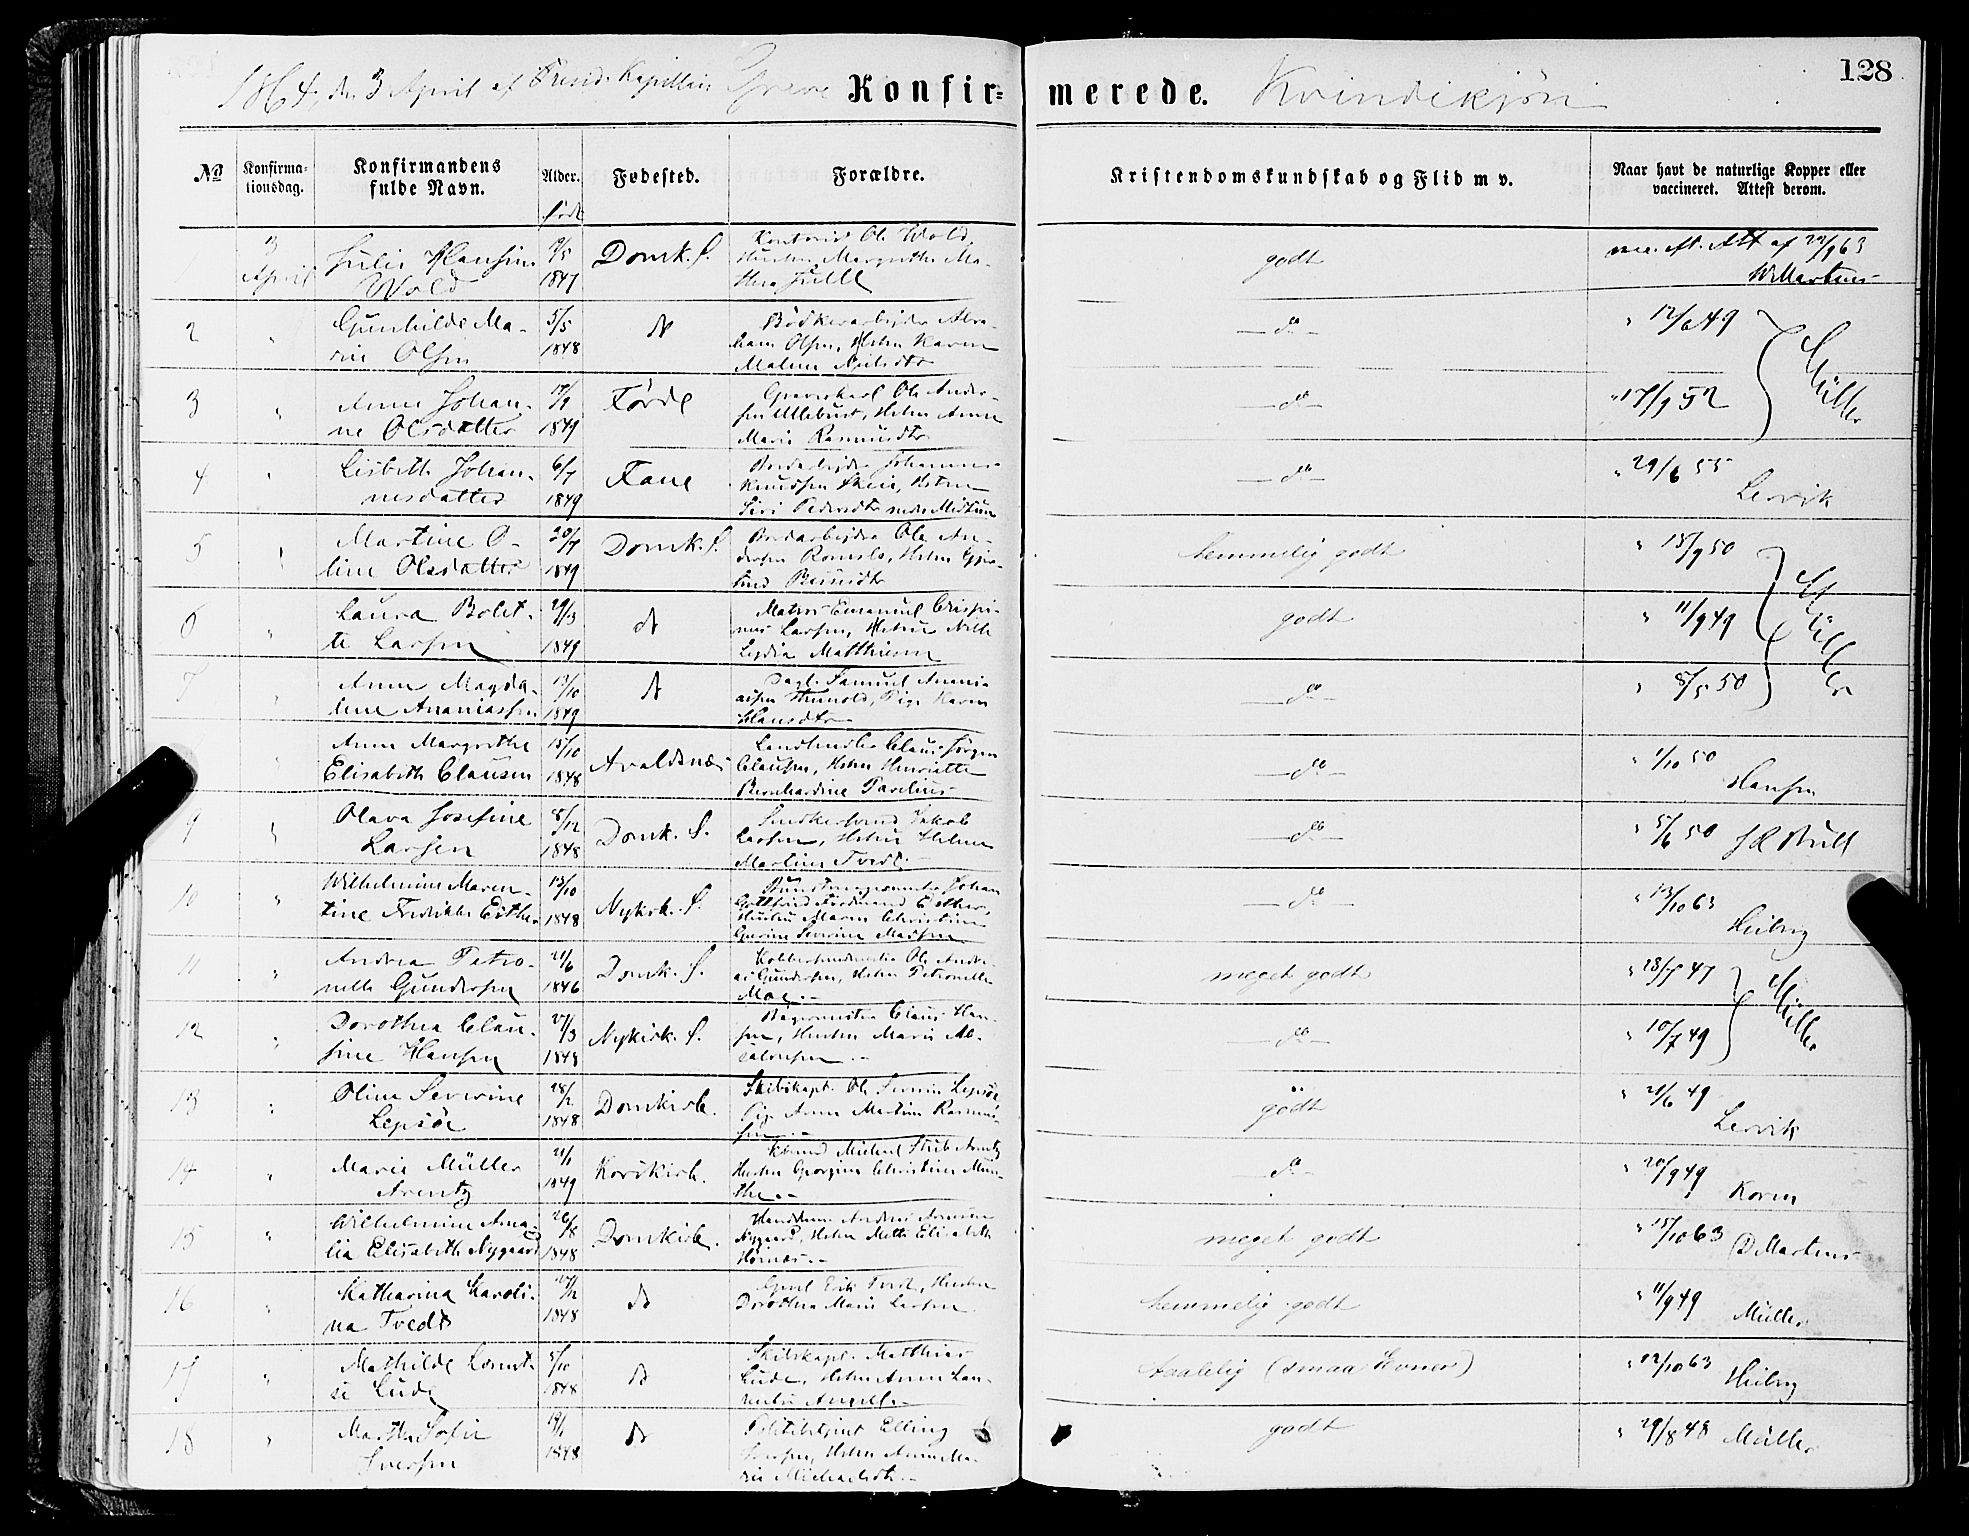 128
1864, den 3 April af Resid. Kapellan Greve Konfir= merede. Kvindekjøn
No
Konfirma-
tionsdag.
Konfirmandens
fulde Navn.
Alder.
født
Fødested.
Forældre.
Kristendomskundskab og Flid m v.
Naar havt de naturlige Kopper eller
vaccineret. Attest derom.
3
April
Julie Hansine
Wold
1847
Domk. S.
Kontorist Ole Wold,
Hustru Margrethe Ma-
godt
Att af 63
2
Gunhilde Ma-
rie Olsen
5/5
1848
Bødkerarbejder Abra-
ham Olsen, Hstru Karen
Malene
do
12/6 49
Müller
3
Anne Johan-
ne Olsdatter
1849
Førde
Ole Anders-
Hstru Anne
Marie Rasmusdtr
do
17/9 52
4
Lisbeth Johan-
nesdatter
6/7
1849
Fane
Johannes
Knudsen Skeie, Hstru
Siri Pedersdtr
do
29/6 55
Lervik
5
Martine O-
line Olsdatter
20/7
1849
Domk. S.
Bordarbejder Ole An-
dersen
temmelig godt
15/9 50
6
Laura Bolet-
te Larsen
29/3
1849
do
Matros Emanuel Crispi-
nus Larsen, Hstru Nille
Lydia Matthiesen
godt
11/9 49
Müller
7
Anne Magda-
lene Ananiassen
13/10
1849
do
Dagl. Samuel Anania-
Pige Karen
Hansdtr
do
8/5 50
Anne Margrethe
Elisabeth Clausen
15/10
1848
Avaldsnæs
Landhandler Claus Jørgen
Clausen, Hstru Henriette
Bernhardine
do
1/10 50
Hansen
9
Olava Josefine
Larsen
8/12
1848
Domk. S.
Snedkersvend Jakob
Larsen, Hstru Helene
Martine Tvedt
do
5/6 50
10
Wilhelmine Maren-
tine Fredrikke Esther
13/10
1848
Nykirk. S.
Johan
Gottfried Ferdinand Esther,
Hustru Maren Christine
Severine
do
13/10 63
Heiberg
11
Andrea Petro-
nelle Gundersen
21/6
1846
Domk. S.
Ole Andre-
as Gundersen, Hstru Petronelle
Moe
meget godt
28/7 47
Müller
12
Dorothea Clau-
sine Hansen
27/3
1848
Nykirk. S.
Bagermester Claus Han-
sen, Hustru Marie Ab-
salonsen
do
10/7 49
13
Oline Severine
Lepsöe
28/2
1848
Domkirk.
Skibskapt. Ole Severin Lepsöe
Pige Anne Martine Rasmus-
sen
godt
21/6 49
Lervik
14
Marie Müller
Arentz
21/1
1849
Korskirk.
Købmd Michael Strib Arentz
Hustru Georgine Christine Mun-
the
do
20/9 49
Koren
15
Wilhelmine Ama-
lia Elisabeth Nygaard
26/8
1848
Domkirk.
Nygaard, Hstru Mette Elisabeth
meget godt
15/10 63
D Martens
16
Katharina Karoli-
na Tvedt
1848
do
Erik Tvedt, Hustru
Dorothea Marie Larsen
temmelig godt
11/9 49
Müller
17
Mathilde Lorent-
se Lude
5/10
1848
do
Skibskapt. Matthias
Lude, Hstru Anne Lau-
taalelig (smaa Evner)
12/10 63
Heiberg
18
Martha Sofie
Iversen
19/1
1848
do
Politibetjent Elling
Iversen, Hstru Anne Ma-
rie Michaelsdtr
godt
29/8 48
Müller